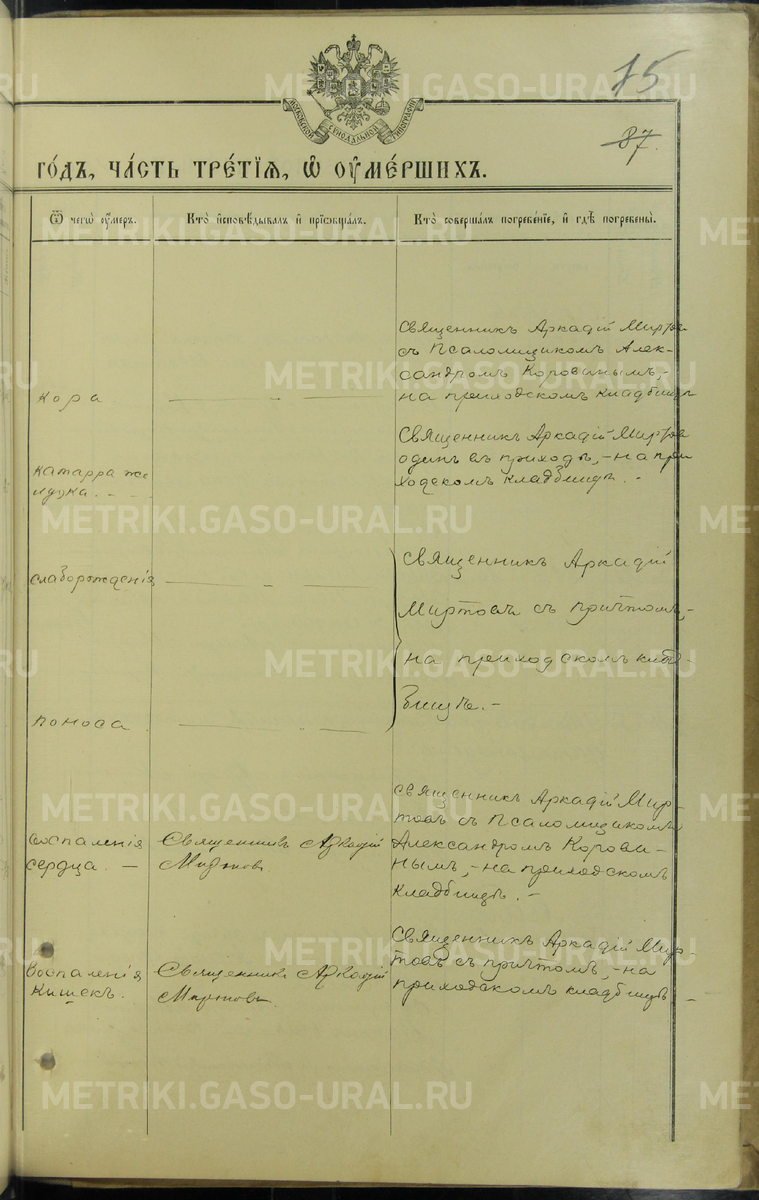 75
87.
МОСКОВСКОЙ СѴНОДАЛЬНОЙ ТИПОГРАФІИ
ГО́ДЪ, ЧА́СТЬ ТРЕ́ТІѦ, Ѡ҆ ОУ҆МЕ́РШИХЪ.
Ѿ чегѡ̀ оу҆́меръ.
Кто̀ и҆сповѣ́дывалъ и҆ прїѡбща́лъ.
Кто̀ соверша́лъ погребе́нїе, и҆ гдѣ̀ погребены̀.
кора
Священникъ Аркадій Миртовъ
съ Псаломщикомъ Алек-
сандромъ Корованымъ,-
на приходскомъ кладбищѣ
катарра же
лудка. - -
Священникъ Аркадій Миртов
одинъ въ приходѣ,-на при
ходскомъ кладбищѣ. -
слаборожденія
поноса
Священникъ Аркадій
Миртовъ съ причтомъ,-
на приходскомъ клад-
бищѣ.-
воспаленія
сердца. -
Священникъ Аркадій
Миртов
священникъ Аркадій Мир-
товъ съ Псаломщикомъ
Александромъ Корова-
нымъ,-на приходскомъ
кладбищѣ. -
Воспаленія
кишекъ.
Священникъ Аркадій
Миртовъ
Священникъ Аркадій Мир-
товъ съ причтомъ,-на
приходскомъ кладбищѣ -
METRIKI.GASO-URAL.RU